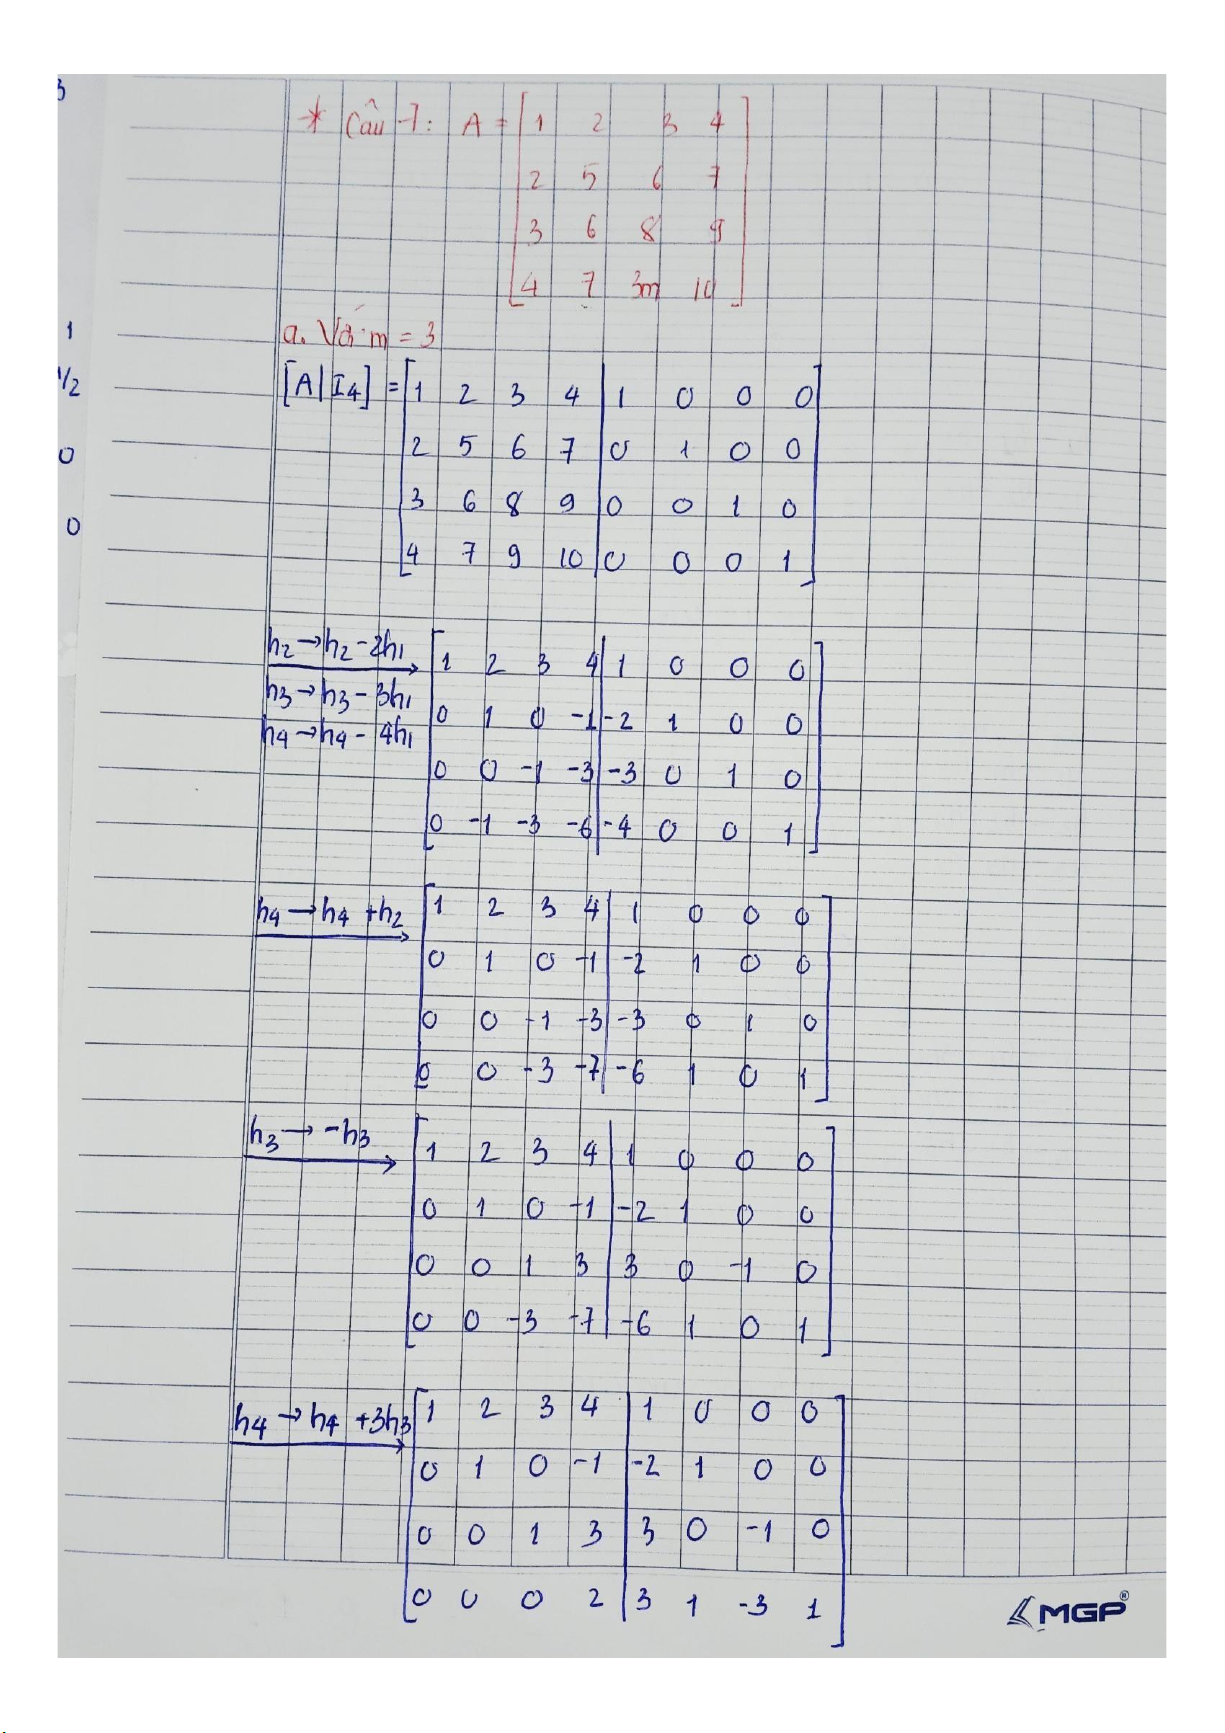 3
* Câu 7: A = [1 2 3 4
2 5 6 7
3 6 8 9
4 7 3m 10]
1
a. Với m = 3
1/2
[A|I4] = [1 2 3 4 | 1 0 0 0
2 5 6 7 | 0 1 0 0
0
3 6 8 9 | 0 0 1 0
0
4 7 9 10 | 0 0 0 1]
h2→h2-2h1 [1 2 3 4 | 1 0 0 0
h3→h3-3h1 0 1 0 -1 | -2 1 0 0
h4→h4-4h1
0 0 -1 -3 | -3 0 1 0
0 -1 -3 -6 | -4 0 0 1]
h4→h4+h2 [1 2 3 4 | 1 0 0 0
0 1 0 -1 | -2 1 0 0
0 0 -1 -3 | -3 0 1 0
0 0 -3 -7 | -6 1 0 1]
h3→-h3 [1 2 3 4 | 1 0 0 0
0 1 0 -1 | -2 1 0 0
0 0 1 3 | 3 0 -1 0
0 0 -3 -7 | -6 1 0 1]
h4→h4+3h3 [1 2 3 4 | 1 0 0 0
0 1 0 -1 | -2 1 0 0
0 0 1 3 | 3 0 -1 0
0 0 0 2 | 3 1 -3 1]
MGP®